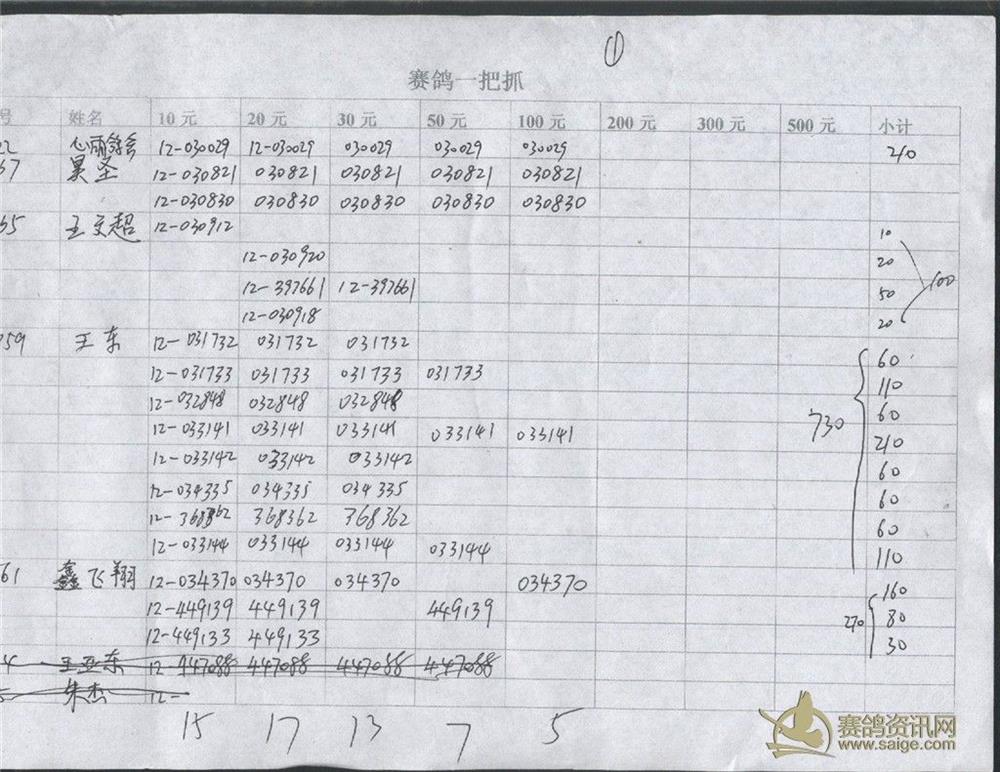 ①
赛鸽一把抓
号 姓名 10 元 20 元 30 元 50 元 100 元 200 元 300 元 500 元 小计
22 心雨鸽舍 12-030029 12-030029 030029 030029 030029 210
67 昊圣 12-030821 030821 030821 030821 030821
12-030830 030830 030830 030830 030830
65 王文超 12-030912 10
12-030920 20
12-397661 12-397661 50 100
12-030918 20
059 王东 12-031732 031732 031732 60
12-031733 031733 031733 031733 110
12-032848 032848 032848 60
12-033141 033141 033141 033141 033141 730 210
12-033142 033142 033142 60
12-034335 034335 034335 60
12-368362 368362 368362 60
12-033144 033144 033144 033144 110
61 鑫飞翔 12-034370 034370 034370 034370 160
12-449139 449139 449139 270 80
12-449133 449133 30
4 王亚东 12-447088 447088 447088 447088
朱杰 12-
15 17 13 7 5
赛鸽资讯网
www.saige.com